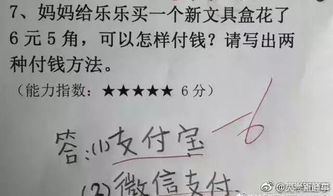 7、妈妈给乐乐买一个新文具盒花了
6元5角，可以怎样付钱？请写出两
种付钱方法。
（能力指数：★★★★★ 6分）
答：(1)支付宝 -6
(2)微信支付.